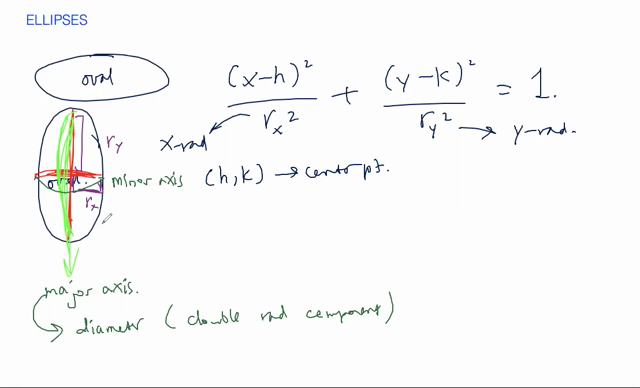 ELLIPSES
oval
(x-h)² / rₓ² + (y-k)² / r_y² = 1.
x-rad
y-rad.
r_y
oval.
minor axis
(h,k) → center pt.
rₓ
major axis.
→ diameter (double rad component)